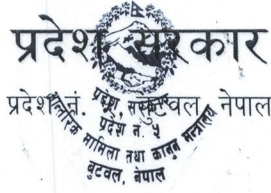 प्रदेश सरकार
प्रदेश नं. बुटवल, नेपाल
प्रदेश सरकार
प्रदेश नं. ५
आन्तरिक मामिला तथा कानुन मन्त्रालय
बुटवल, नेपाल